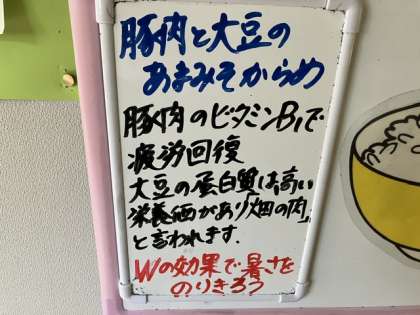 豚肉と大豆の
あまみそからめ
豚肉のビタミンB₁で
疲労回復
大豆の蛋白質は高い
栄養価があり畑の肉」
と言われます.
Wの効果で暑さを
のりきろう